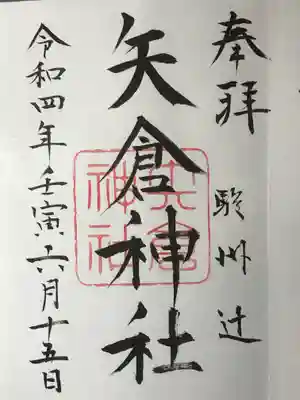 奉拝 駿州辻
矢倉神社
矢倉神社
令和四年壬寅六月十五日